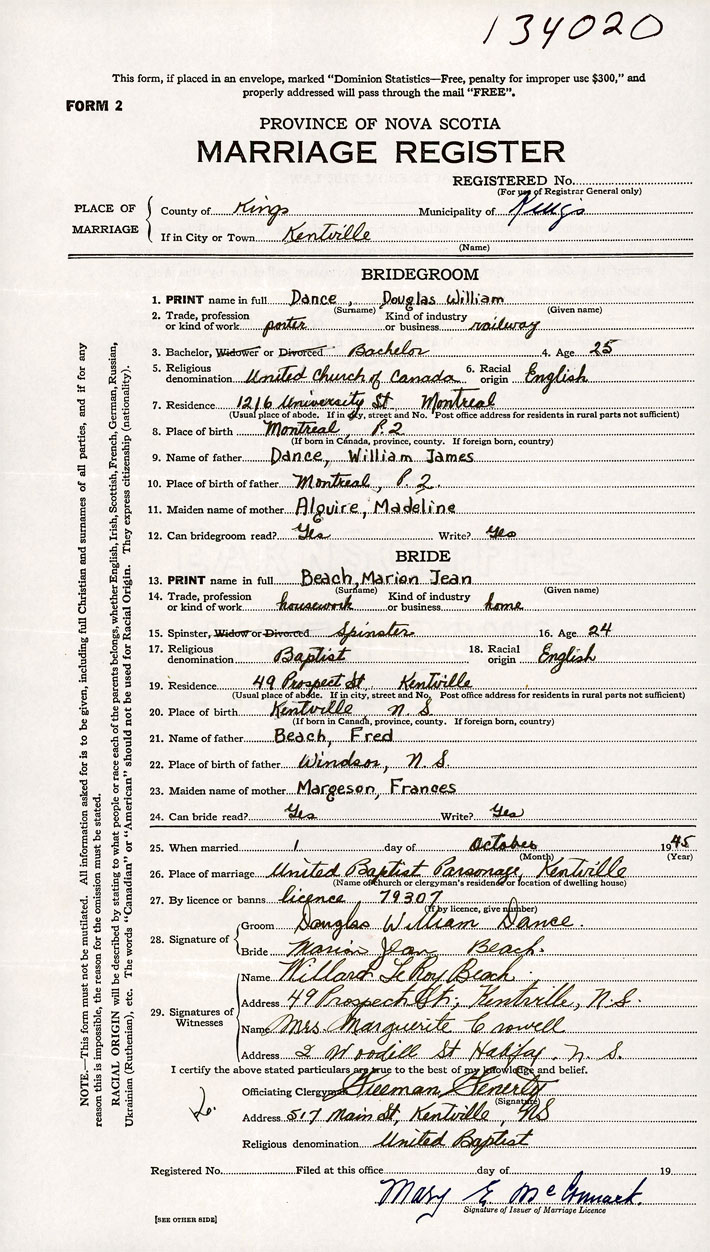 134020
This form, if placed in an envelope, marked “Dominion Statistics—Free, penalty for improper use $300,” and
properly addressed will pass through the mail “FREE”.
FORM 2
PROVINCE OF NOVA SCOTIA
MARRIAGE REGISTER
REGISTERED No.
(For use of Registrar General only)
PLACE OF MARRIAGE
County of Kings Municipality of Kings
If in City or Town Kentville
(Name)
BRIDEGROOM
1. PRINT name in full Dance, Douglas William
(Surname) (Given name)
2. Trade, profession or kind of work porter Kind of industry or business railway
3. Bachelor, Widower or Divorced Bachelor 4. Age 25
5. Religious denomination United Church of Canada 6. Racial origin English
7. Residence 1216 University St Montreal
(Usual place of abode. If in city, street and No. Post office address for residents in rural parts not sufficient)
8. Place of birth Montreal P.Q
(If born in Canada, province, county. If foreign born, country)
9. Name of father Dance, William James
10. Place of birth of father Montreal, P.Q.
11. Maiden name of mother Alguire, Madeline
12. Can bridegroom read? Yes Write? Yes
BRIDE
13. PRINT name in full Beach, Marion Jean
(Surname) (Given name)
14. Trade, profession or kind of work housework Kind of industry or business home
15. Spinster, Widow or Divorced Spinster 16. Age 24
17. Religious denomination Baptist 18. Racial origin English
19. Residence 49 Prospect St, Kentville
(Usual place of abode. If in city, street and No. Post office address for residents in rural parts not sufficient)
20. Place of birth Kentville, N.S.
(If born in Canada, province, county. If foreign born, country)
21. Name of father Beach, Fred
22. Place of birth of father Windsor, N.S.
23. Maiden name of mother Margeson, Frances
24. Can bride read? Yes Write? Yes
25. When married 1 day of October 1945
(Month) (Year)
26. Place of marriage United Baptist Parsonage, Kentville
(Name of church or clergyman's residence or location of dwelling house)
27. By licence or banns licence 79307
(If by licence, give number)
28. Signature of
Groom Douglas William Dance.
Bride Marion Jean Beach.
29. Signatures of Witnesses
Name Willard LeRoy Beach
Address 49 Prospect St., Kentville, N.S.
Name Mrs. Marguerite Crowell
Address 2 Woodill St Halifax, N.S.
I certify the above stated particulars are true to the best of my knowledge and belief.
Officiating Clergyman Freeman Fenerty
(Signature)
Address 517 Main St, Kentville, NS
Religious denomination United Baptist
Registered No. Filed at this office day of 19
Mary E. McCormack.
Signature of Issuer of Marriage Licence
[SEE OTHER SIDE]
NOTE.—This form must not be mutilated. All information asked for is to be given, including full Christian and surnames of all parties, and if for any
reason this is impossible, the reason for the omission must be stated.
RACIAL ORIGIN will be described by stating to what people or race each of the parents belongs, whether English, Irish, Scottish, French, German, Russian,
Ukrainian (Ruthenian), etc. The words “Canadian” or “American” should not be used for Racial Origin. They express citizenship (nationality).